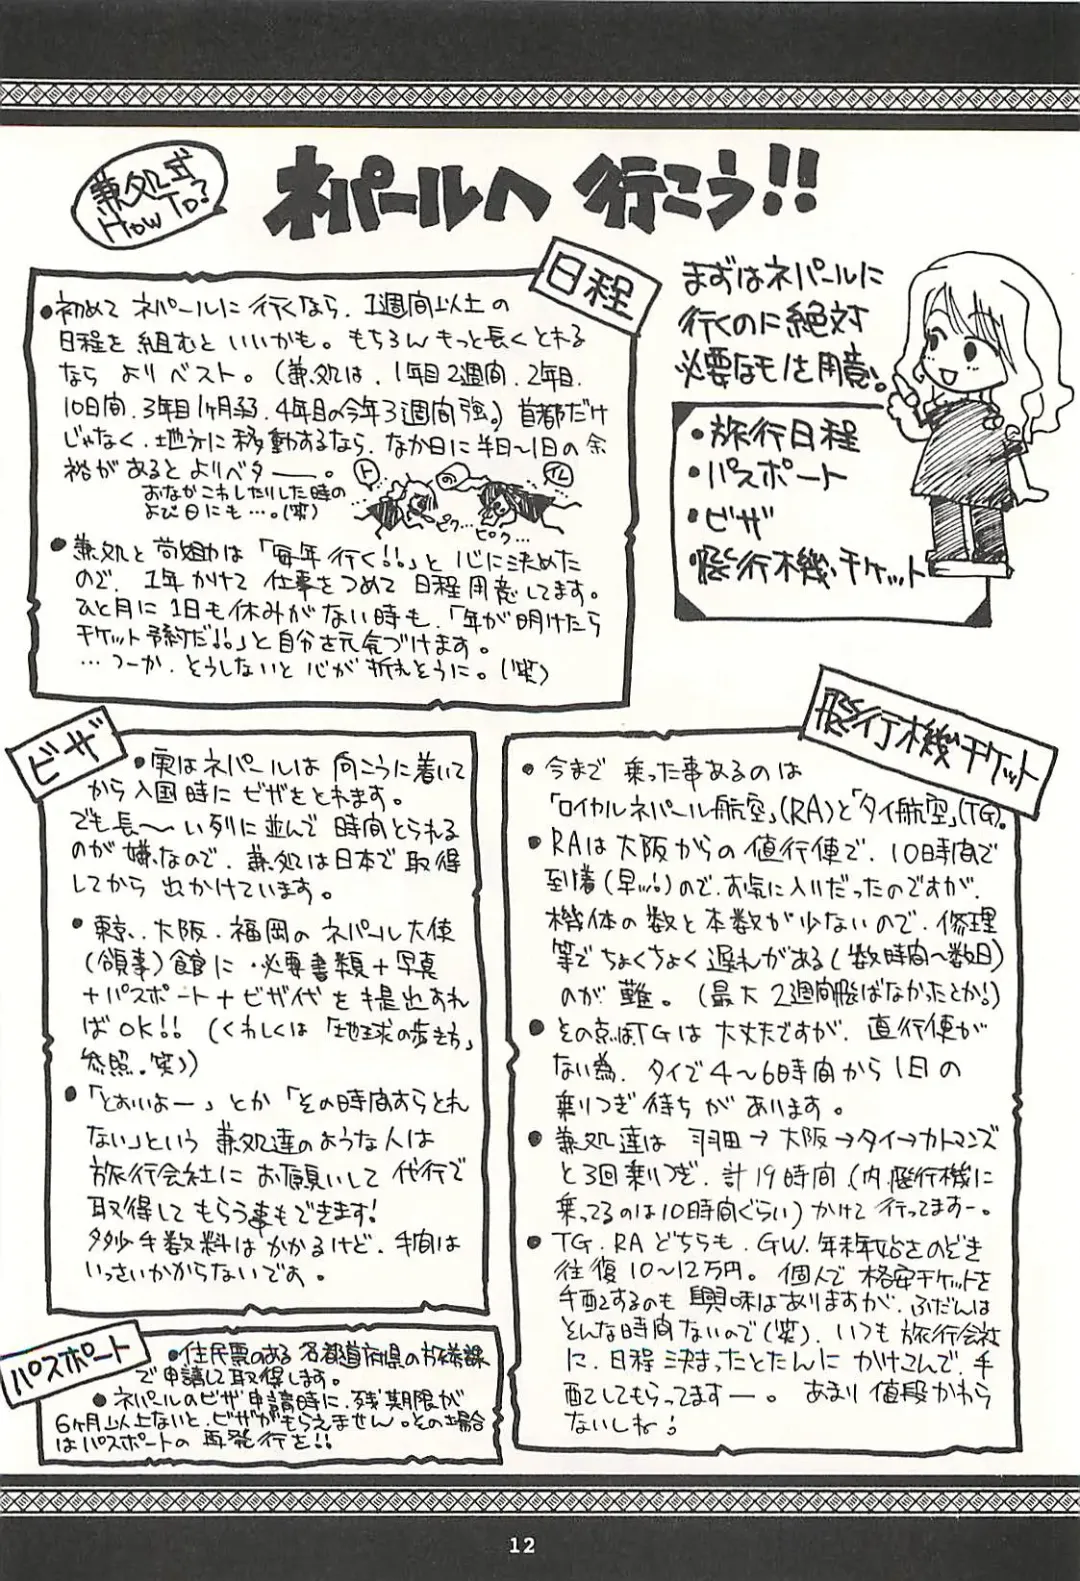 兼処式
How To?
ネパールへ 行こう!!
まずはネパールに
行くのに絶対
必要なモノを用意。
・旅行日程
・パスポート
・ビザ
・飛行機チケット
日程
●初めて ネパールに 行くなら、1週間以上の
日程を 組むと いいかも。もちろん もっと長く とれる
なら よりベスト。(兼処は、1年目2週間、2年目
10日間、3年目1ヶ月弱、4年目の今年3週間強。)首都だけ
じゃなく、地方に移動するなら、なか日に半日〜1日の余
裕があると よりベター。
おなかこわしたりした時の
よび日にも…。(笑)
ピク…
ピク…
●兼処と尚姐は「毎年行く!!」と 心に決めた
ので、1年かけて 仕事をつめて 日程用意してます。
ひと月に1日も休みがない時も、「年が明けたら
チケット予約だ!!」と自分を元気づけます。
…つーか、そうしないと 心が 折れそうに。(笑)
ビザ
●実はネパールは 向こうに着いて
から入国時に ビザをとれます。
でも長〜い列に並んで 時間とられる
のが 嫌なので、兼処は日本で取得
してから 出かけています。
●東京、大阪、福岡の ネパール大使
(領事)館に、必要書類+写真
+パスポート+ビザ代 を 提出すれ
ば OK!! (くわしくは「地球の歩き方」
参照。笑))
●「とおいよー」とか「その時間すらとれ
ない」という 兼処達のような人は
旅行会社に お願いして 代行で
取得して もらう事もできます!
多少手数料は かかるけど、手間は
いっさいかからないです。
パスポート
●住民票のある 各都道府県の旅券課
で申請して取得します。
●ネパールのビザ申請時に、残期限が
6ヶ月以上ないと、ビザがもらえません。その場合
はパスポートの 再発行を!!
飛行機チケット
●今まで 乗った事あるのは
「ロイヤルネパール航空」(RA)と「タイ航空」(TG)。
●RAは 大阪からの 直行便で、10時間で
到着(早ッ!)ので、お気に入りだったのですが、
機体の数と本数が少ないので、修理
等で ちょくちょく 遅れがある(数時間〜数日)
のが 難。(最大 2週間飛ばなかったとか!)
●その点は、TGは 大丈夫ですが、直行便が
ない為、タイで 4〜6時間から 1日の
乗りつぎ待ちが あります。
●兼処達は 羽田→大阪→タイ→カトマンズ
と3回乗りつぎ、計19時間(内、飛行機に
乗ってるのは10時間ぐらい)かけて 行ってますー。
●TG、RA どちらも、GW、年末年始さのどき
往復10〜12万円。個人で 格安チケットを
手配するのも 興味はありますが、ふだんは
そんな時間ないので(笑)、いつも 旅行会社
に、日程決まったとたんに かけこんで、手
配してもらってますー。あまり 値段かわら
ないしね!
12